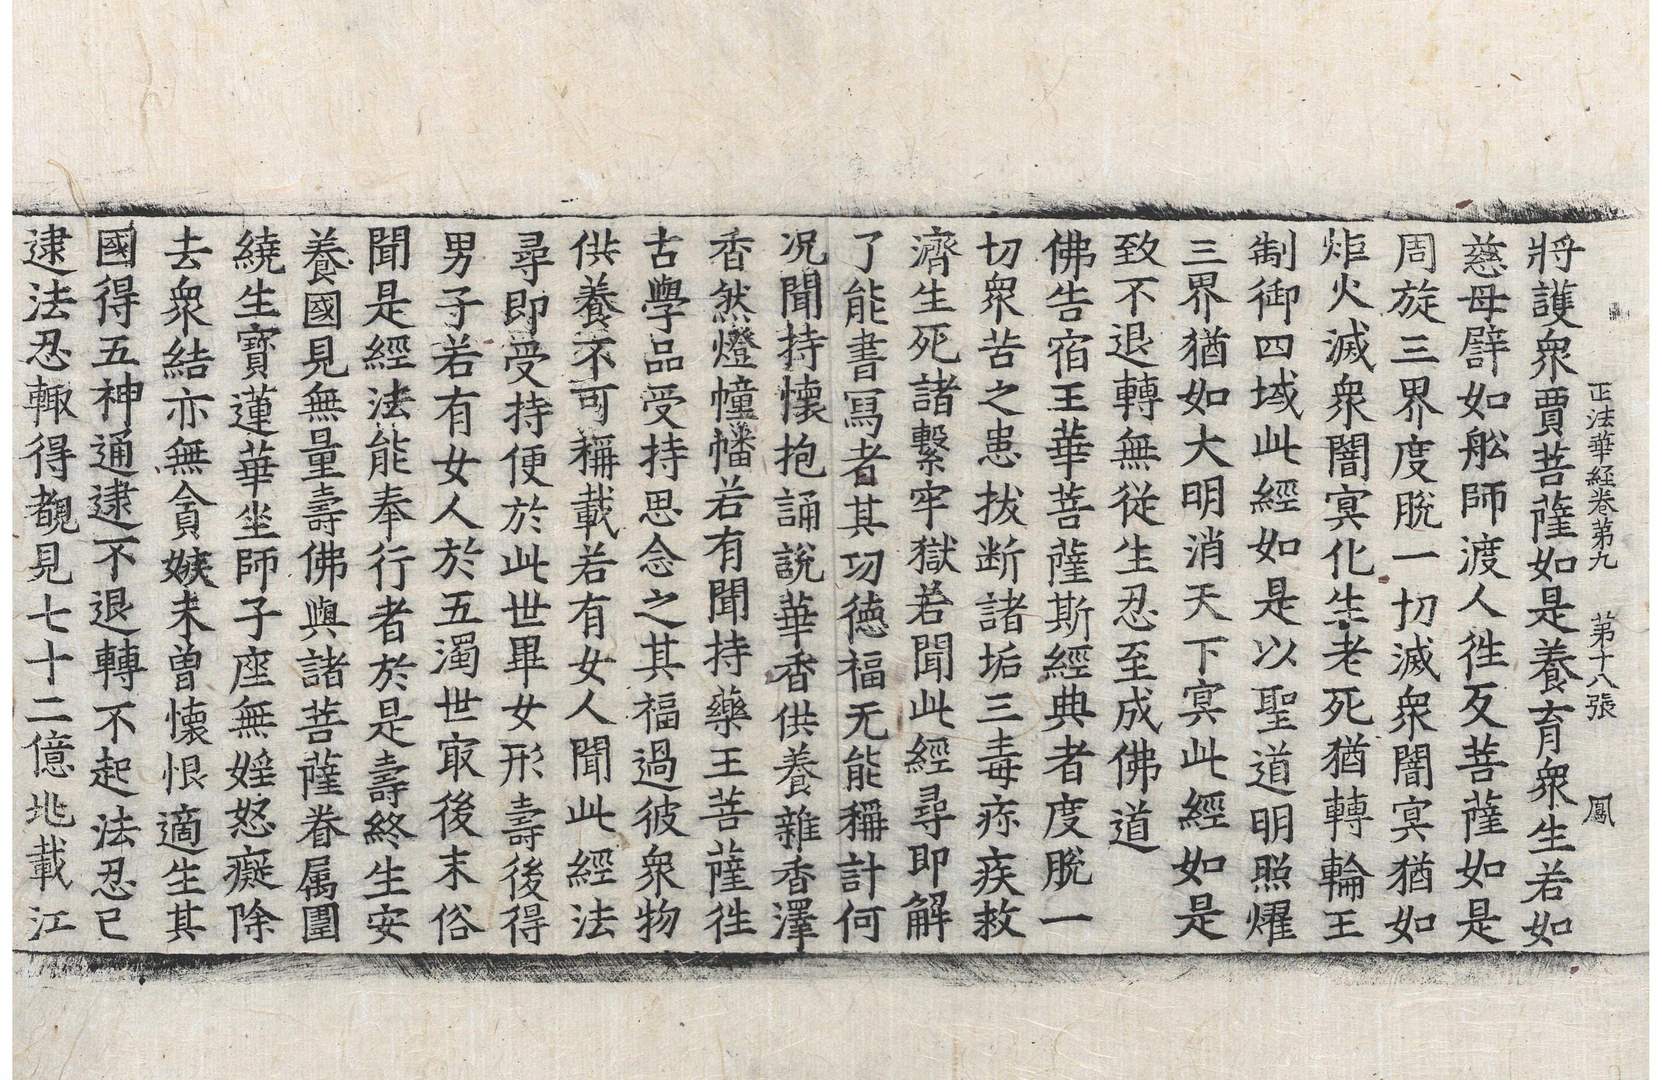 正法華經卷第九　第十八張　鳳
將護衆賈菩薩如是養育衆生若如
慈母譬如舩師渡人徃反菩薩如是
周旋三界度脫一切滅衆闇冥猶如
炬火滅衆闇冥化生老死猶轉輪王
制御四域此經如是以聖道明照燿
三界猶如大明消天下冥此經如是
致不退轉無從生忍至成佛道
佛告宿王華菩薩斯經典者度脫一
切衆苦之患拔断諸垢三毒疹疾救
濟生死諸繫牢獄若聞此經尋即解
了能書寫者其功德福无能稱計何
况聞持懷抱誦說華香供養雜香澤
香然燈幢幡若有聞持藥王菩薩徃
古學品受持思念之其福過彼衆物
供養不可稱載若有女人聞此經法
尋即受持便於此世畢女形壽後得
男子若有女人於五濁世㝡後末俗
聞是經法能奉行者於是壽終生安
養國見無量壽佛與諸菩薩眷属圍
繞生寶蓮華坐師子座無婬怒癡除
去衆結亦無貪嫉未曽懷恨適生其
國得五神通逮不退轉不起法忍已
逮法忍輙得覩見七十二億兆載江